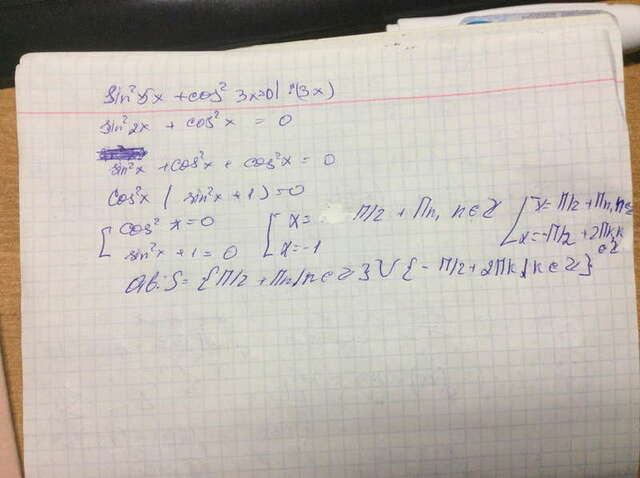 sin²5x + cos² 3x=0 | :(3x)
sin²2x + cos²x = 0
sin²x + cos²x + cos²x = 0
cos²x ( sin²x + 1) = 0
[ cos² x = 0
sin²x + 1 = 0
[ x = П/2 + Пn, n ∈ Z
x = -1
[ x = П/2 + Пn, n ∈ Z
x = -П/2 + 2Пk, k ∈ Z
S = {П/2 + Пn/n ∈ Z} ∪ {- П/2 + 2Пk/k ∈ Z}